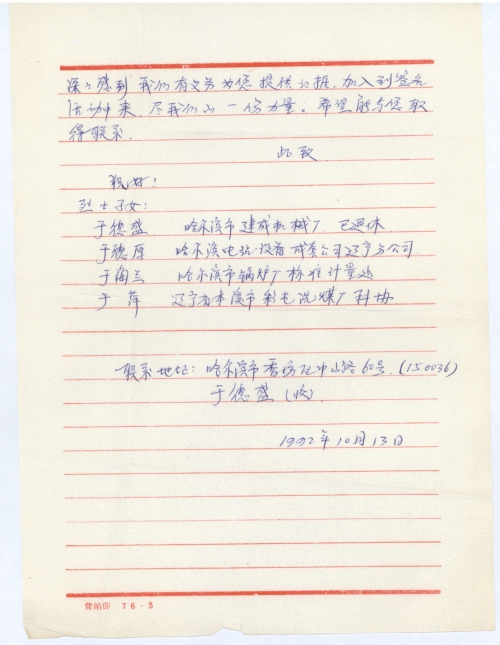 深深感到我们有义务为您提供证据，加入到签名
活动中来，尽我们的一份力量。希望能与您取
得联系。
此致
祝好！
烈士子女：
于德盛 哈尔滨市建成机械厂 已退休
于德厚 哈尔滨电站设备成套公司辽宁分公司
于海兰 哈尔滨市锅炉厂标准计量处
于萍 辽宁省本溪市彩屯洗煤厂科协
联系地址：哈尔滨市香坊区中山路60号（150036）
于德盛（收）
1992年10月13日
营站印 76·5